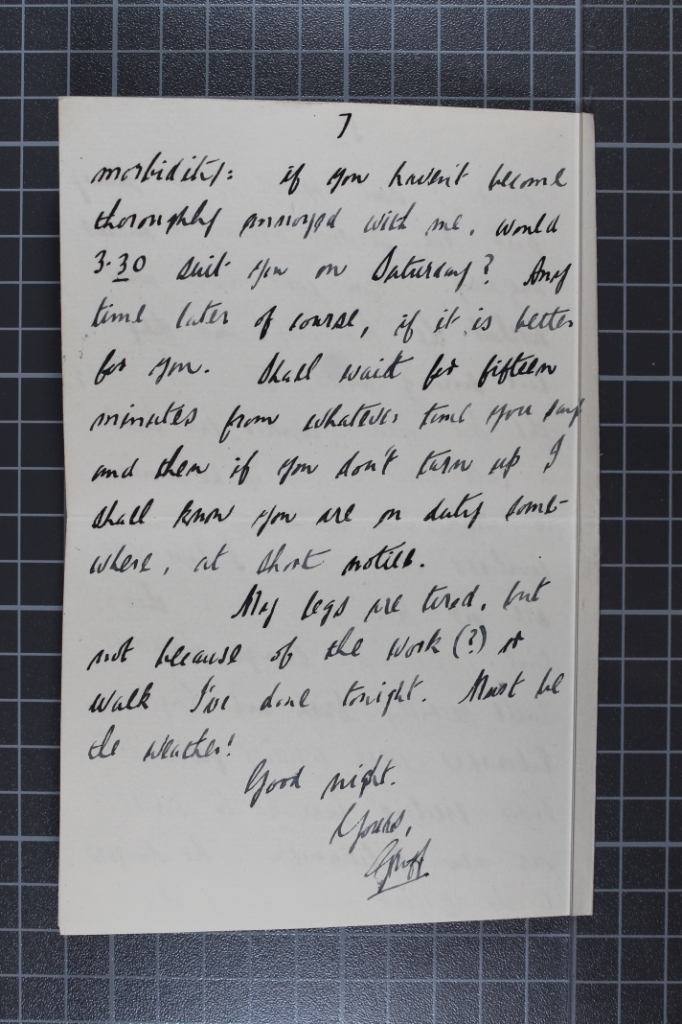 7
morbidity: if you haven't become
thoroughly annoyed with me, would
3.30 suit you on Saturday? Any
time later of course, if it is better
for you. Shall wait for fifteen
minutes from whatever time you say
and then if you don't turn up I
shall know you are on duty some-
where, at short notice.
My legs are tired, but
not because of the work (?) or
walk I've done tonight. Must be
the weather!
Good night.
Yours,